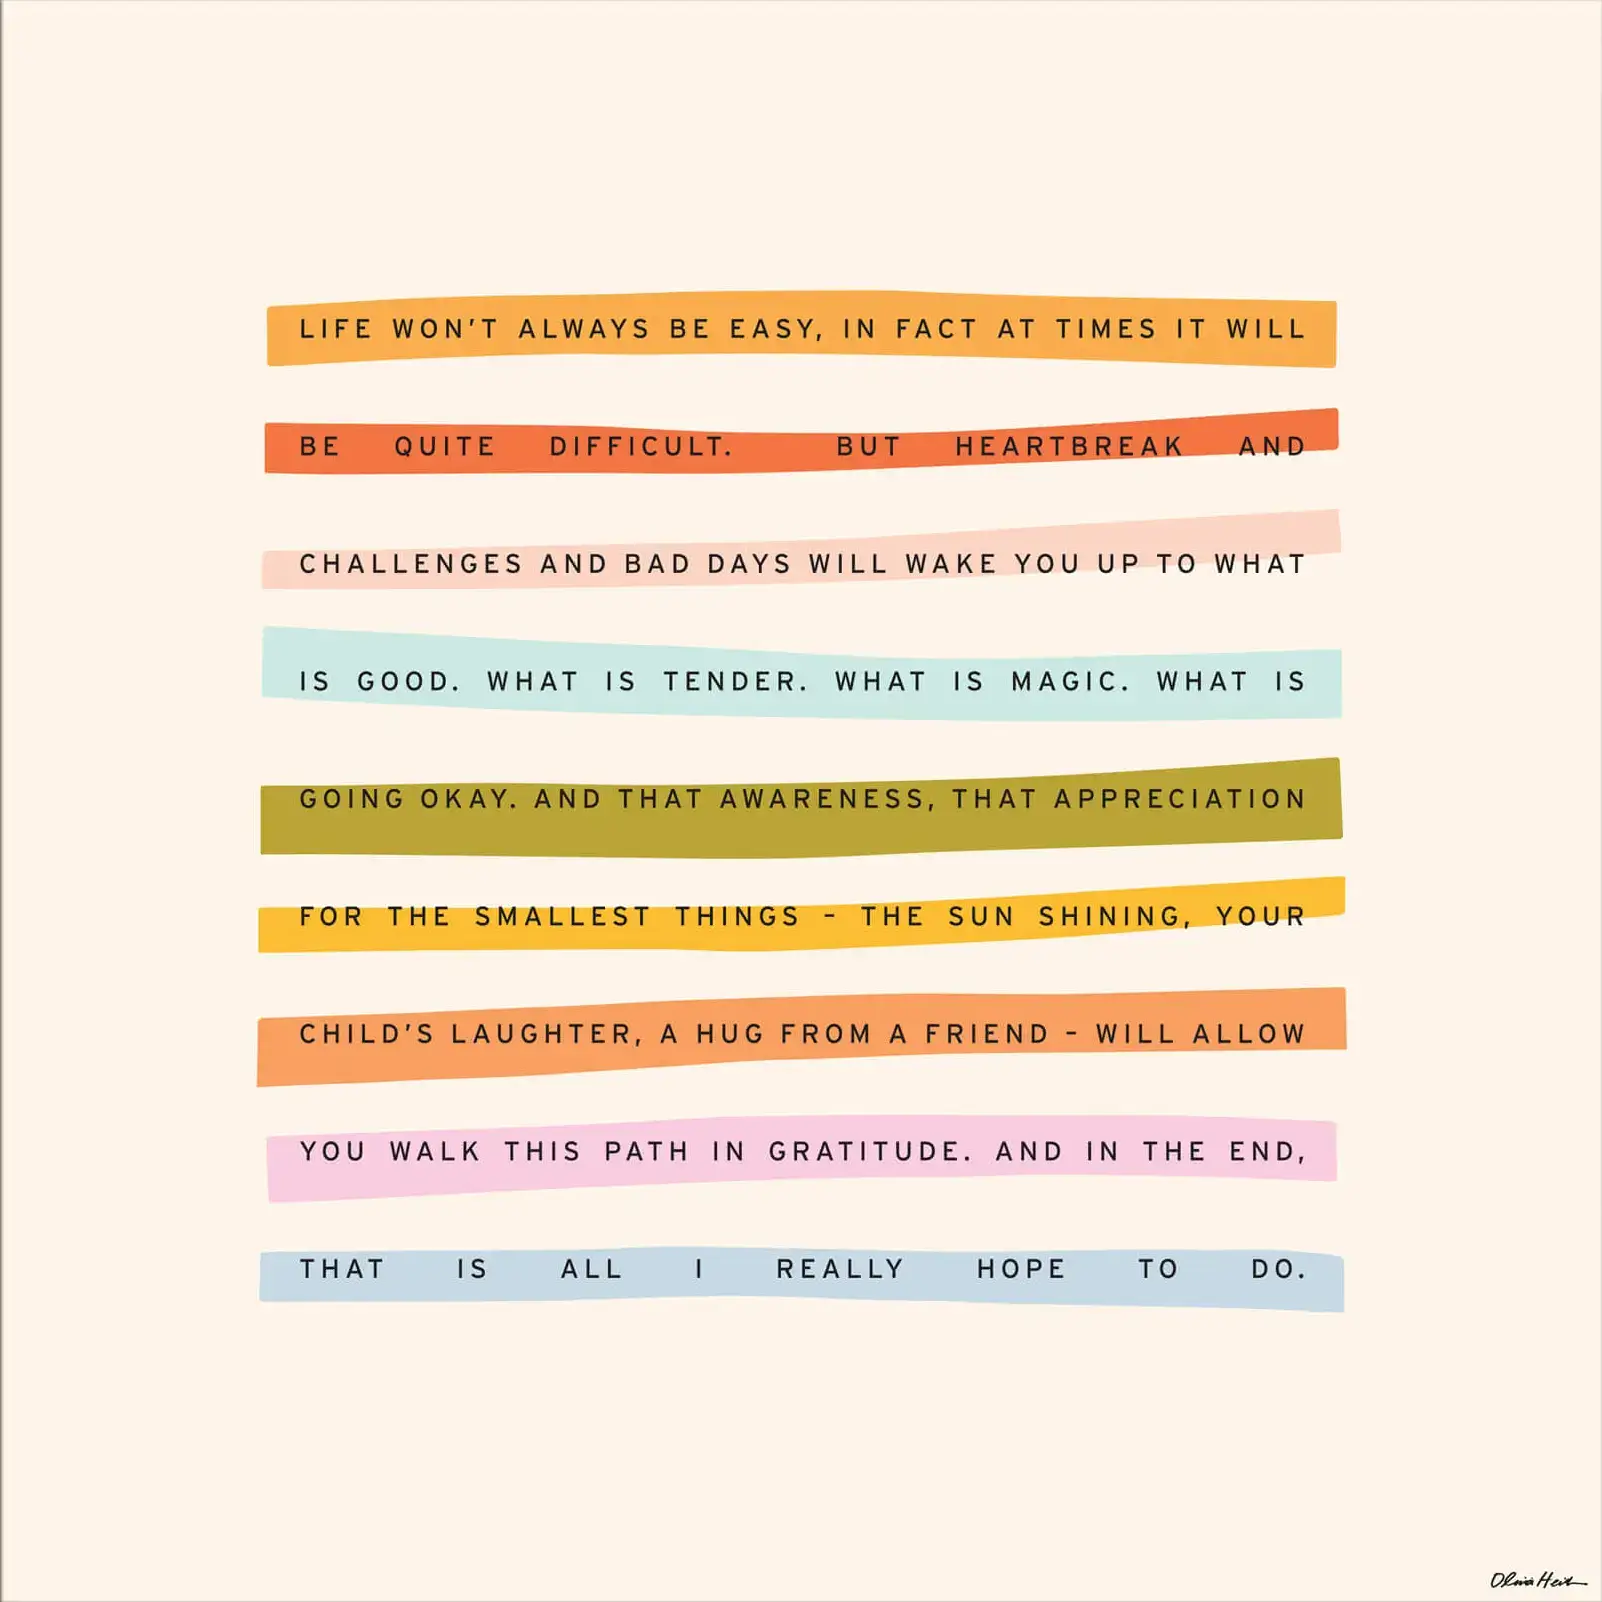 LIFE WON'T ALWAYS BE EASY, IN FACT AT TIMES IT WILL
BE QUITE DIFFICULT. BUT HEARTBREAK AND
CHALLENGES AND BAD DAYS WILL WAKE YOU UP TO WHAT
IS GOOD. WHAT IS TENDER. WHAT IS MAGIC. WHAT IS
GOING OKAY. AND THAT AWARENESS, THAT APPRECIATION
FOR THE SMALLEST THINGS - THE SUN SHINING, YOUR
CHILD'S LAUGHTER, A HUG FROM A FRIEND - WILL ALLOW
YOU WALK THIS PATH IN GRATITUDE. AND IN THE END,
THAT IS ALL I REALLY HOPE TO DO.